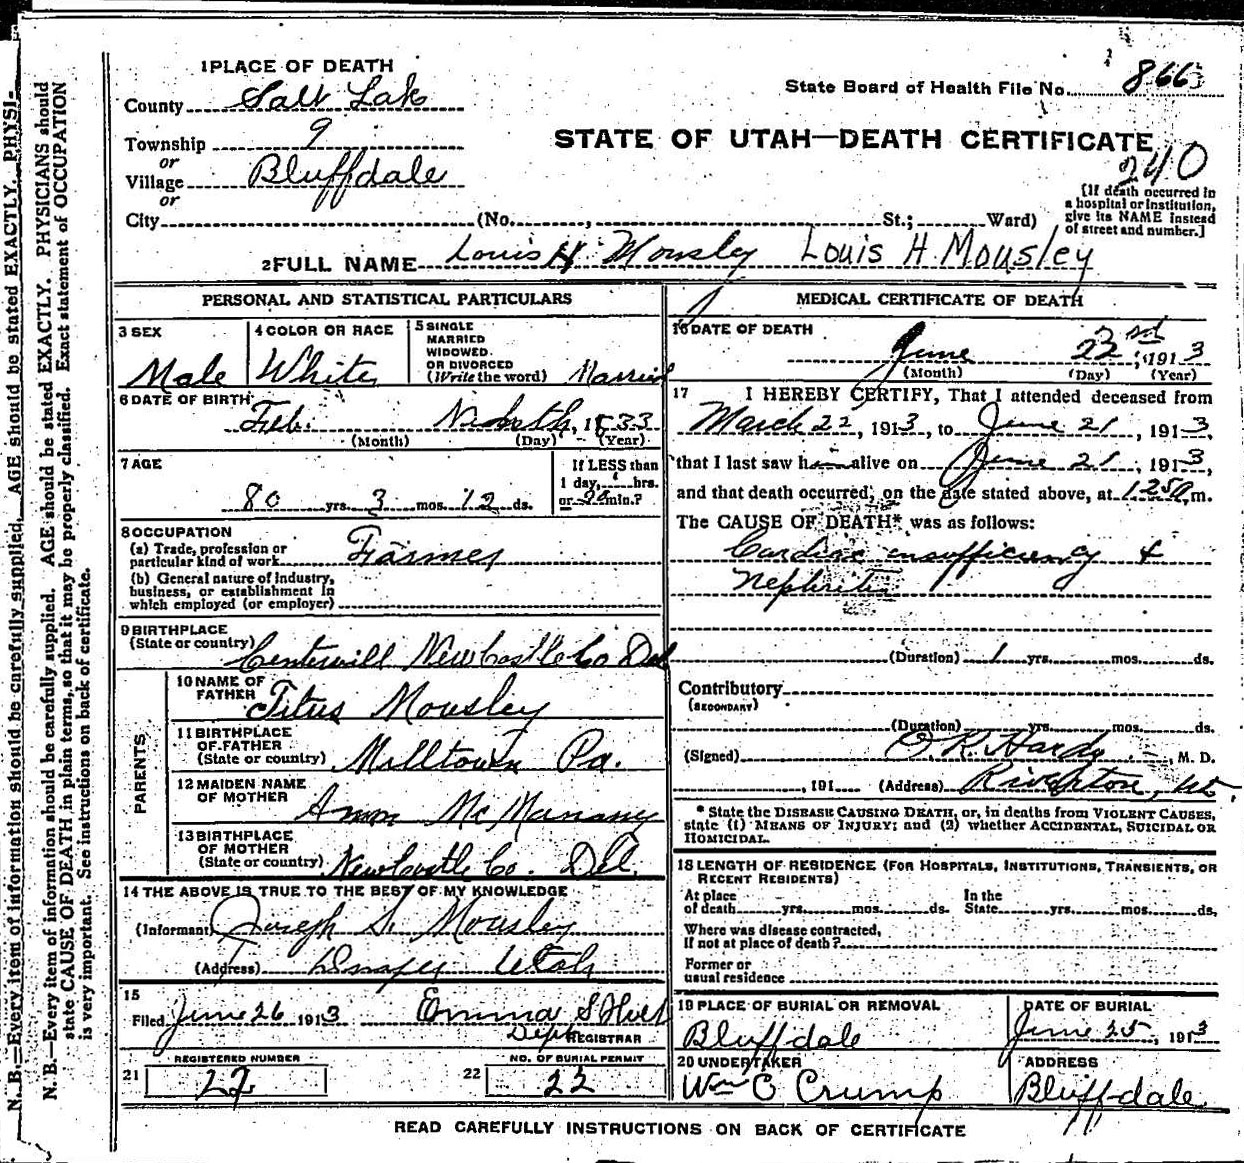 N. B.—Every item of information should be carefully supplied. AGE should be stated EXACTLY. PHYSI-
N. B.—Every item of information should be carefully supplied. AGE should be stated EXACTLY. PHYSICIANS should
state CAUSE OF DEATH in plain terms, so that it may be properly classified. Exact statement of OCCUPATION
is very important. See instructions on back of certificate.
1 PLACE OF DEATH
County Salt Lak
State Board of Health File No. 866
Township 9
STATE OF UTAH—DEATH CERTIFICATE
240
or
Village Bluffdale
or
City (No. , St.; Ward)
[If death occurred in
a hospital or institution,
give its NAME instead
of street and number.]
2 FULL NAME Louis H Mousley Louis H Mousley
PERSONAL AND STATISTICAL PARTICULARS
3 SEX
Male
4 COLOR OR RACE
White
5 SINGLE
MARRIED
WIDOWED
OR DIVORCED
(Write the word) Married
6 DATE OF BIRTH
Feb. , 1833
(Month) (Day) (Year)
7 AGE
80 yrs. 3 mos. 12 ds.
If LESS than
1 day, hrs.
or min.?
8 OCCUPATION
(a) Trade, profession or
particular kind of work Farmer
(b) General nature of Industry,
business, or establishment in
which employed (or employer)
9 BIRTHPLACE
(State or country) Centervill NewCastle Co Del
PARENTS
10 NAME OF
FATHER Titus Mousley
11 BIRTHPLACE
OF FATHER
(State or country) Milltown Pa.
12 MAIDEN NAME
OF MOTHER Ann McManamy
13 BIRTHPLACE
OF MOTHER
(State or country) NewCastle Co. Del.
14 THE ABOVE IS TRUE TO THE BEST OF MY KNOWLEDGE
(Informant) Joseph S. Mousley
(Address) Draper Utah
15
Filed June 26 1913 Emma S
Dept REGISTRAR
REGISTERED NUMBER
21 22
NO. OF BURIAL PERMIT
22 22
MEDICAL CERTIFICATE OF DEATH
16 DATE OF DEATH
June , 1913
(Month) (Day) (Year)
17 I HEREBY CERTIFY, That I attended deceased from
March 22, 1913, to June 21, 1913,
that I last saw him alive on June 21, 1913,
and that death occurred, on the date stated above, at m.
The CAUSE OF DEATH* was as follows:
Cardiac insufficiency &
Nephritis
(Duration) 1 yrs. mos. ds.
Contributory
(SECONDARY)
(Duration) yrs. mos. ds.
(Signed) O. R. Hardy , M. D.
, 191 (Address) Riverton, Ut.
* State the DISEASE CAUSING DEATH, or, in deaths from VIOLENT CAUSES,
state (1) MEANS OF INJURY; and (2) whether ACCIDENTAL, SUICIDAL OR
HOMICIDAL.
18 LENGTH OF RESIDENCE (FOR HOSPITALS, INSTITUTIONS, TRANSIENTS, OR
RECENT RESIDENTS)
At place
of death yrs. mos. ds.
In the
State yrs. mos. ds.
Where was disease contracted,
If not at place of death?
Former or
usual residence
19 PLACE OF BURIAL OR REMOVAL
Bluffdale
DATE OF BURIAL
June 25, 1913
20 UNDERTAKER
Wm C Crump
ADDRESS
Bluffdale
READ CAREFULLY INSTRUCTIONS ON BACK OF CERTIFICATE